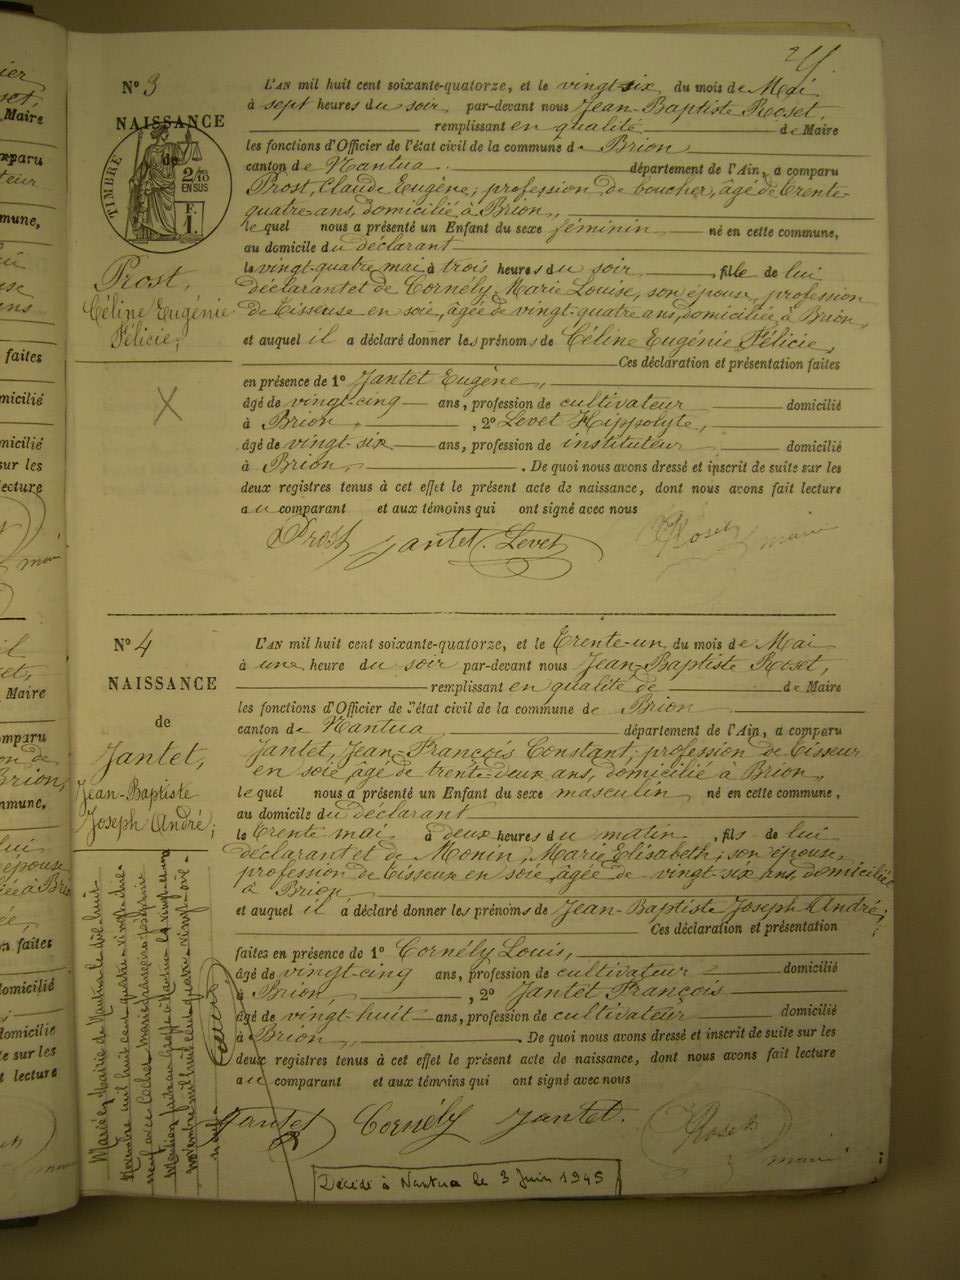 N° 3
NAISSANCE
de
TIMBRE
2/10
EN SUS
F.
1.
Prost,
Céline Eugénie
Félicie,
L'AN mil huit cent soixante-quatorze, et le vingt-six du mois de Mai
à sept heures du soir par-devant nous Jean-Baptiste Roset,
remplissant en qualité de Maire
les fonctions d'Officier de l'état civil de la commune de Brion
canton de Nantua département de l'Ain, a comparu
Prost, Claude Eugène, profession de boucher, âgé de trente-
quatre ans, domicilié à Brion,
lequel nous a présenté un Enfant du sexe féminin né en cette commune,
au domicile du déclarant
le vingt-quatre mai à trois heures du soir, fille de lui
déclarant et de Cornély, Marie Louise, son épouse, profession
de tisseuse en soie, âgée de vingt-quatre ans, domiciliée à Brion,
et auquel il a déclaré donner les prénoms de Céline Eugénie Félicie,
Ces déclaration et présentation faites
en présence de 1° Jantet Eugène,
âgé de vingt-cinq ans, profession de cultivateur domicilié
à Brion, 2° Levet Hippolyte,
âgé de vingt-six ans, profession de instituteur domicilié
à Brion, . De quoi nous avons dressé et inscrit de suite sur les
deux registres tenus à cet effet le présent acte de naissance, dont nous avons fait lecture
au comparant et aux témoins qui ont signé avec nous
Prost Jantet. Levet Roset maire
N° 4
NAISSANCE
de
Jantet,
Jean-Baptiste
Joseph André;
L'AN mil huit cent soixante-quatorze, et le trente-un du mois de Mai
à une heure du soir par-devant nous Jean-Baptiste Roset,
remplissant en qualité de de Maire
les fonctions d'Officier de l'état civil de la commune de Brion
canton de Nantua département de l'Ain, a comparu
Jantet, Jean-François Constant, profession de tisseur
en soie, âgé de trente-deux ans, domicilié à Brion,
lequel nous a présenté un Enfant du sexe masculin né en cette commune,
au domicile du déclarant
le trente mai à deux heures du matin, fils de lui
déclarant et de Monin, Marie Elisabeth, son épouse,
profession de tisseur en soie, âgée de vingt-six ans, domiciliée
à Brion,
et auquel il a déclaré donner les prénoms de Jean-Baptiste Joseph André;
Ces déclaration et présentation
faites en présence de 1° Cornély Louis,
âgé de vingt-cinq ans, profession de cultivateur domicilié
à Brion, 2° Jantet François
âgé de vingt-huit ans, profession de cultivateur domicilié
à Brion, . De quoi nous avons dressé et inscrit de suite sur les
deux registres tenus à cet effet le présent acte de naissance, dont nous avons fait lecture
au comparant et aux témoins qui ont signé avec nous
Jantet Cornély Jantet. Roset maire
Marié en Mairie de Nantua le dix huit
novembre mil huit cent quatre-vingt-dix-
neuf avec
Mention faite au Greffe à Nantua le vingt-un
novembre mil huit cent quatre-vingt-dix-
neuf.
Décédé à Nantua le 3 Juin 1945